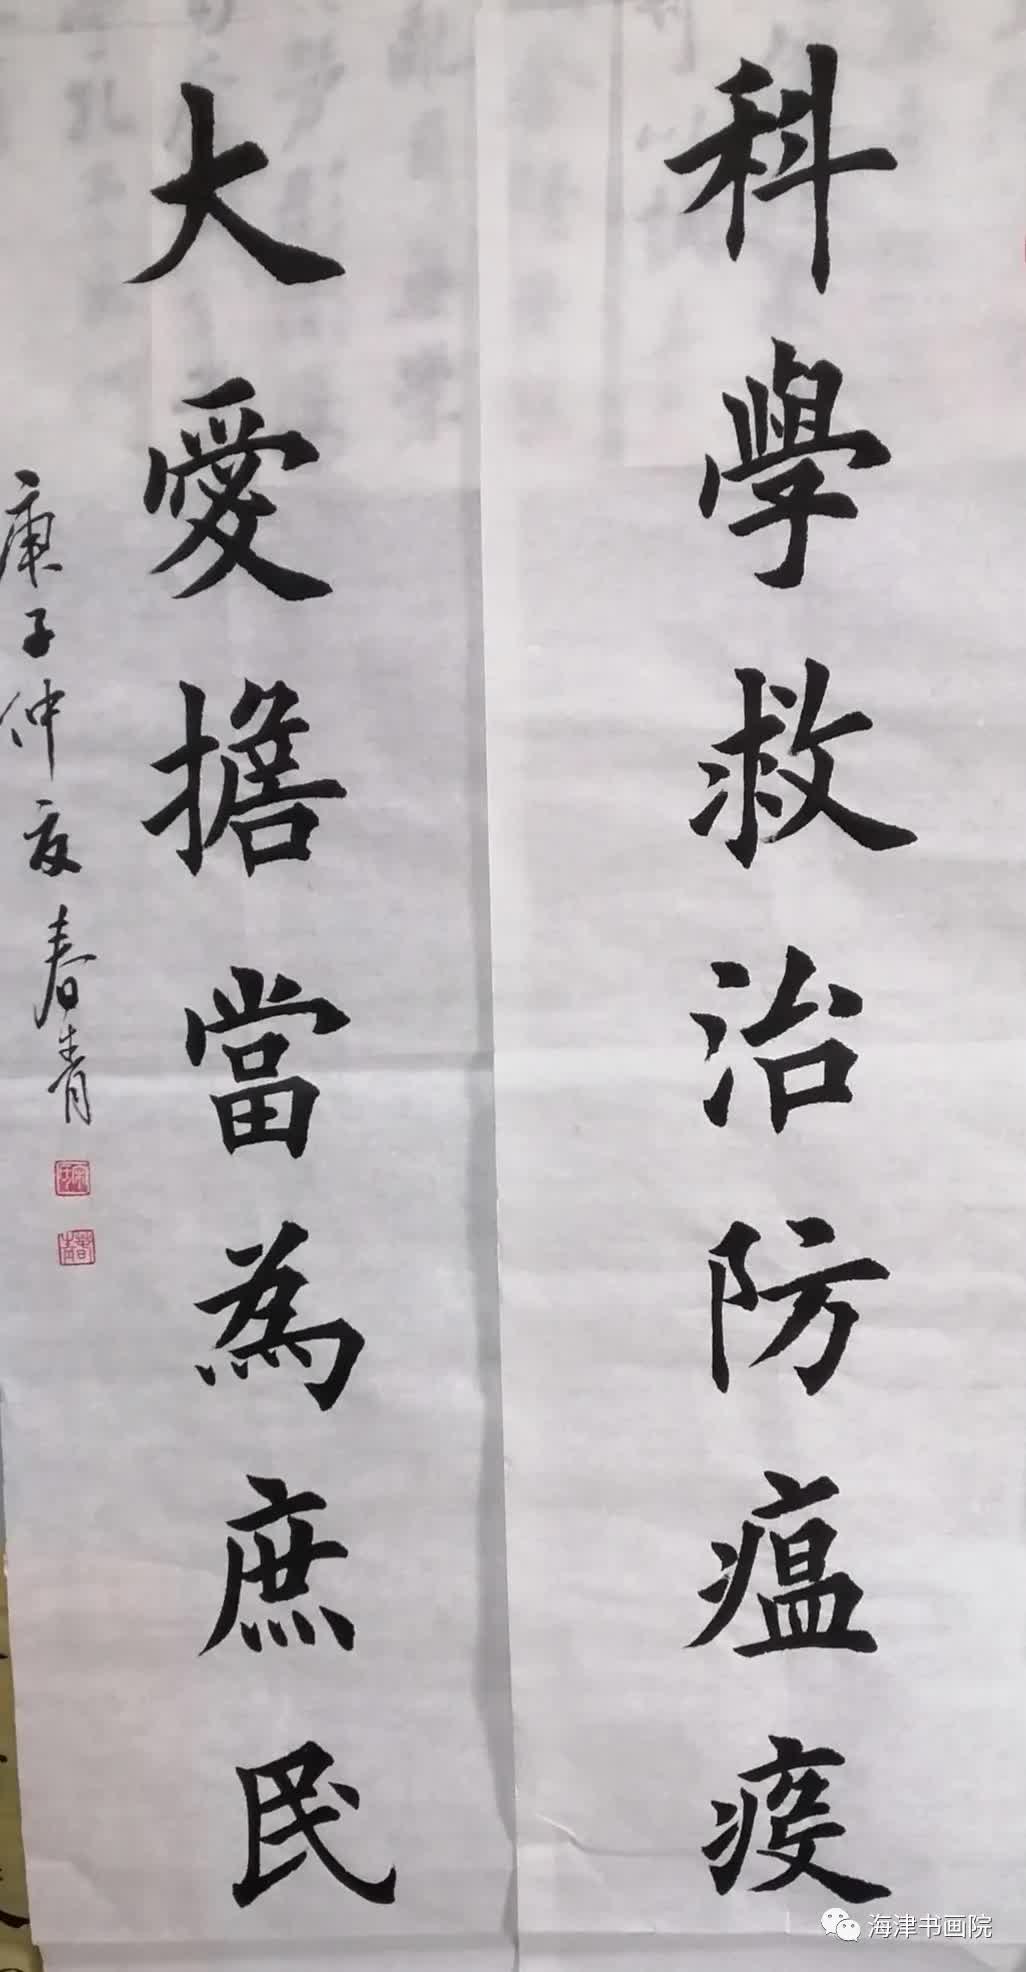 科學救治防瘟疫
大愛擔當為庶民
庚子仲夏春青
海津书画院